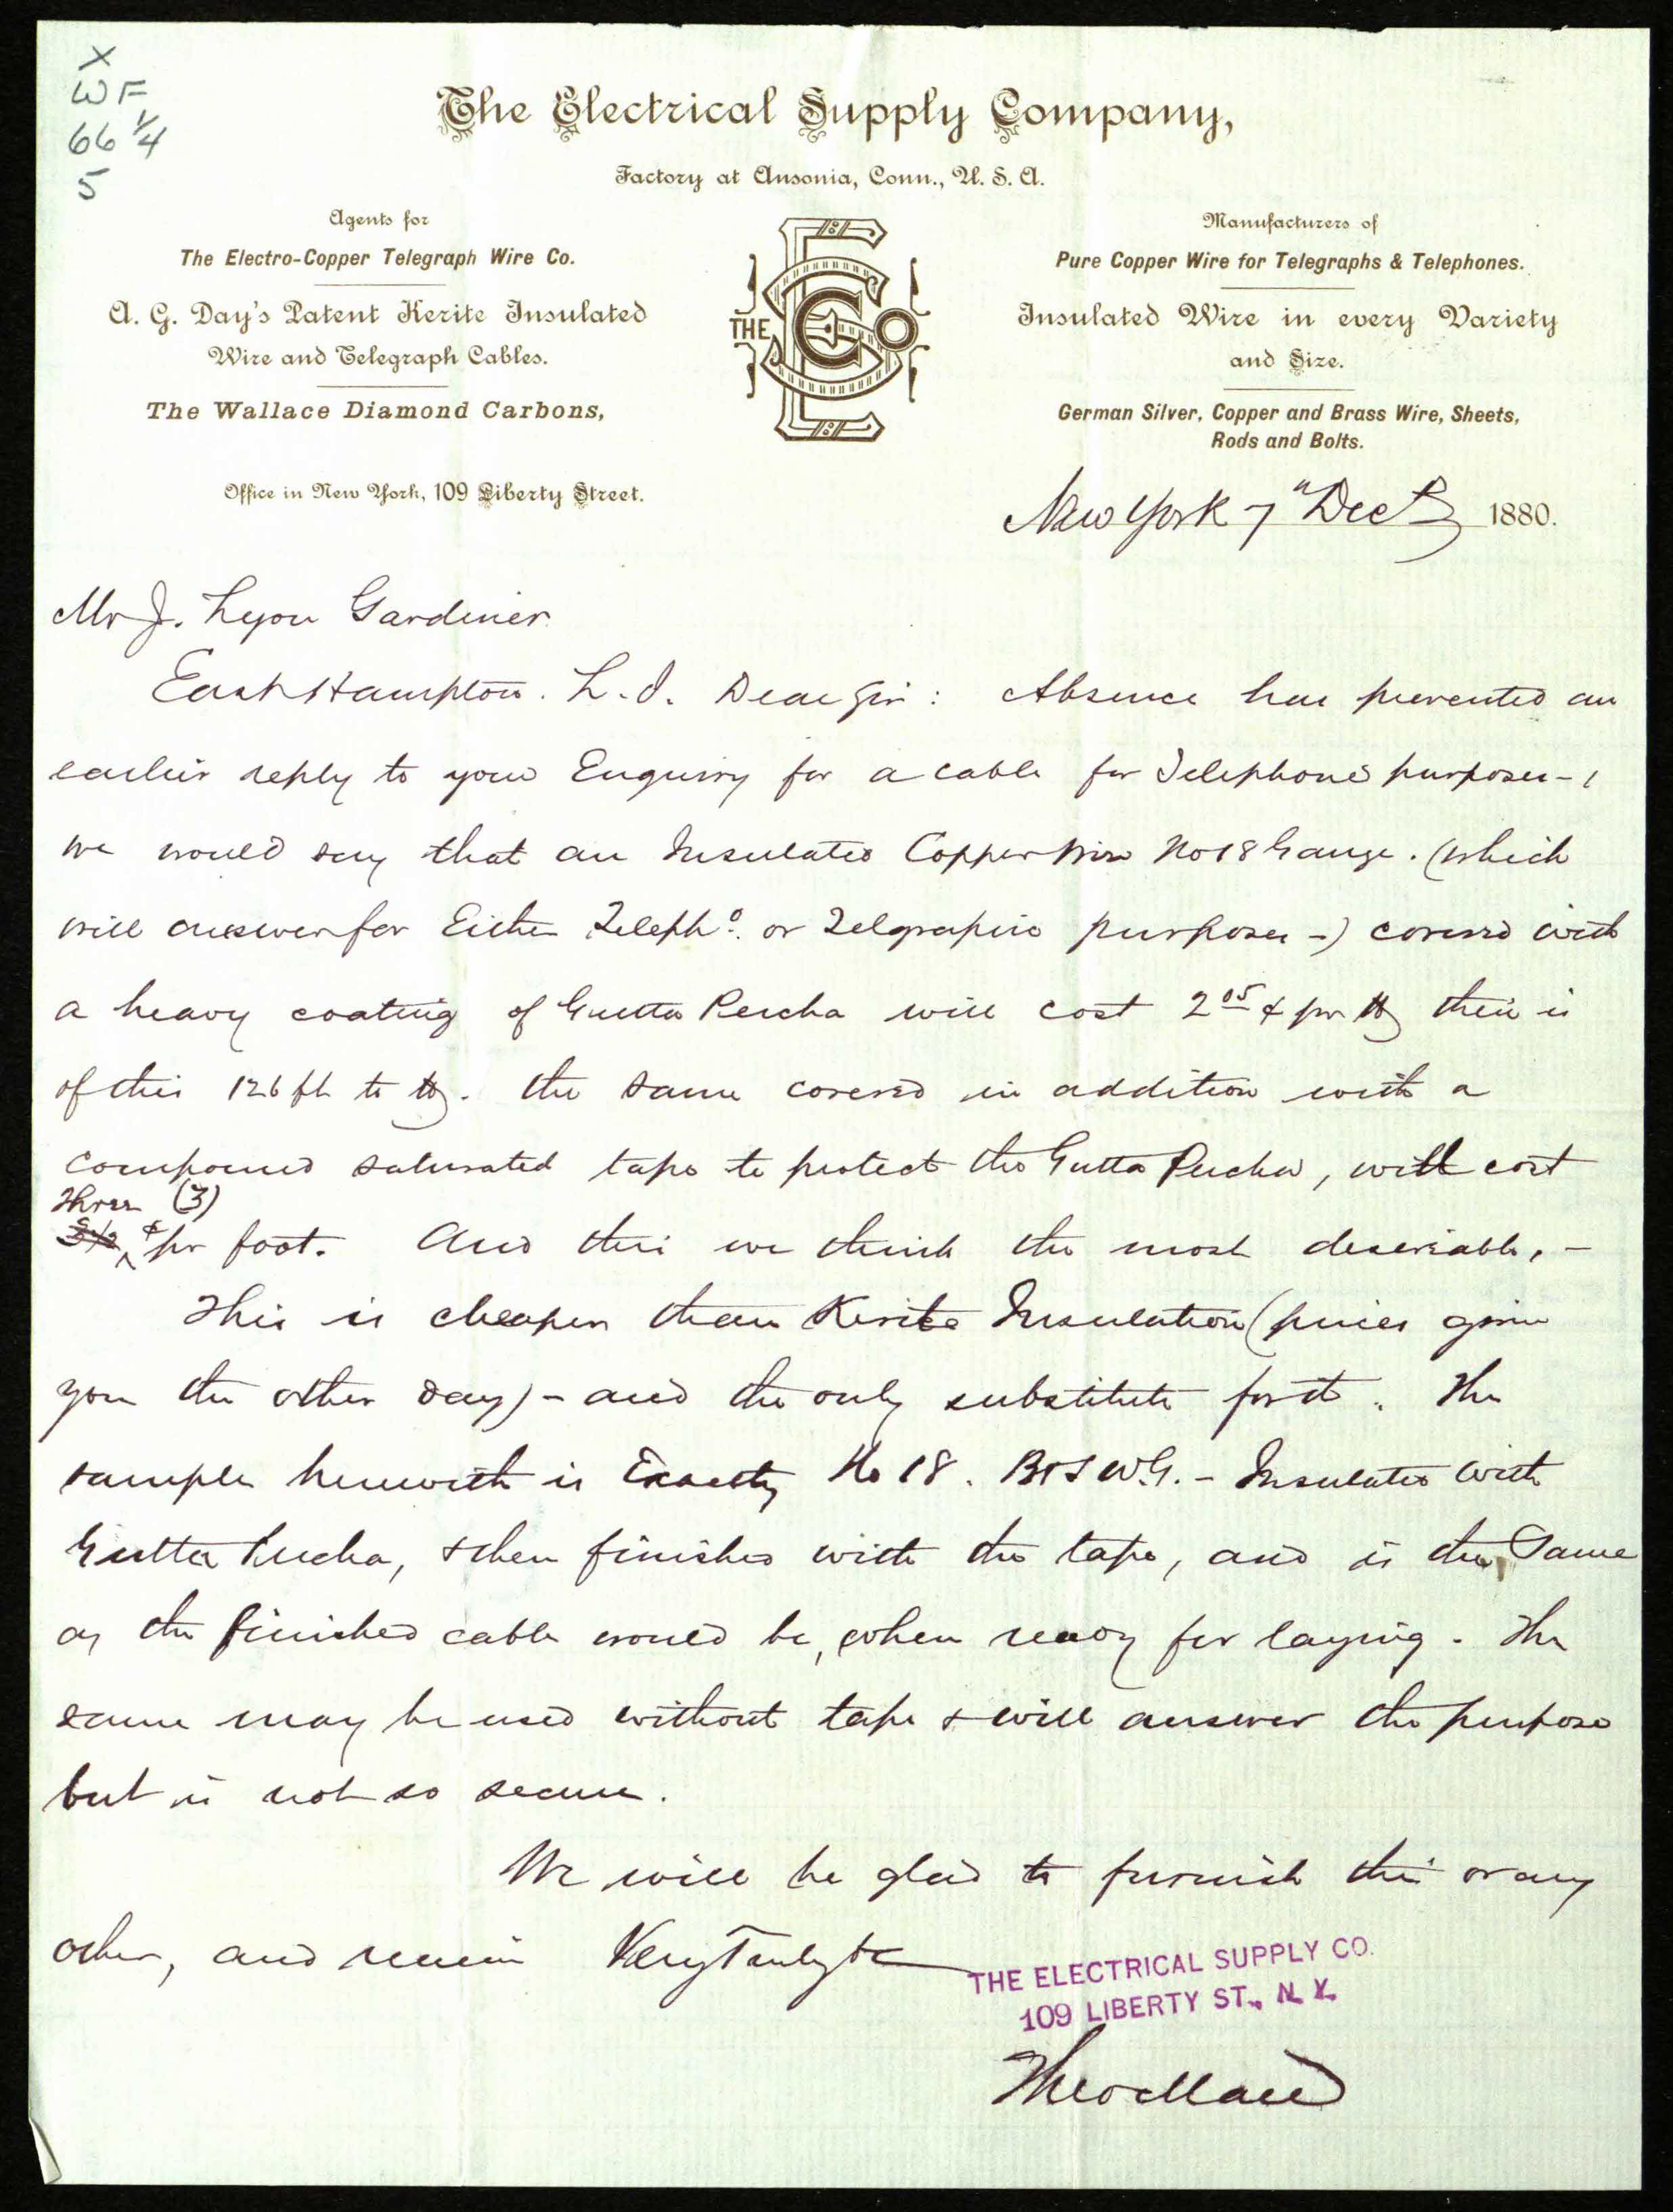 X
WF
66 1/4
5
The Electrical Supply Company,
Factory at Ansonia, Conn., U. S. A.
Agents for
The Electro-Copper Telegraph Wire Co.
A. G. Day's Patent Kerite Insulated
Wire and Telegraph Cables.
The Wallace Diamond Carbons,
Office in New York, 109 Liberty Street.
THE ES Co
Manufacturers of
Pure Copper Wire for Telegraphs & Telephones.
Insulated Wire in every Variety
and Size.
German Silver, Copper and Brass Wire, Sheets,
Rods and Bolts.
New York 7" Dec 1880.
Mr J. Lyon Gardiner
East Hampton. L. I. Dear Sir: Absence has prevented an
earlier reply to your Enquiry for a cable for Telephone purposes-,
we would say that an Insulated Copper Wire No 18 Gauge. (which
will answer for Either Telepho. or Telgraphic purposes-) covered with
a heavy coating of Gutta Percha will cost 2 05 pr lb there is
of this 126 ft to lb. the same covered in addition with a
compound saturated tape to protect the Gutta Percha, will cost
Three (3)
3½ ¢ pr foot. And this we think the most desireable, -
This is cheaper than Kerite Insulation (prices given
you the other day) - and the only substitute for it. The
sample herewith is Exactly No 18. B&S W.G. - Insulated with
Gutta Percha, & then finished with the tape, and is the Same
as the finished cable would be, when ready for laying. The
same may be used without tape & will answer the purpose
but is not so secure.
We will be glad to furnish this or any
other, and remain Very Truly &c
THE ELECTRICAL SUPPLY CO.
109 LIBERTY ST., N. Y.